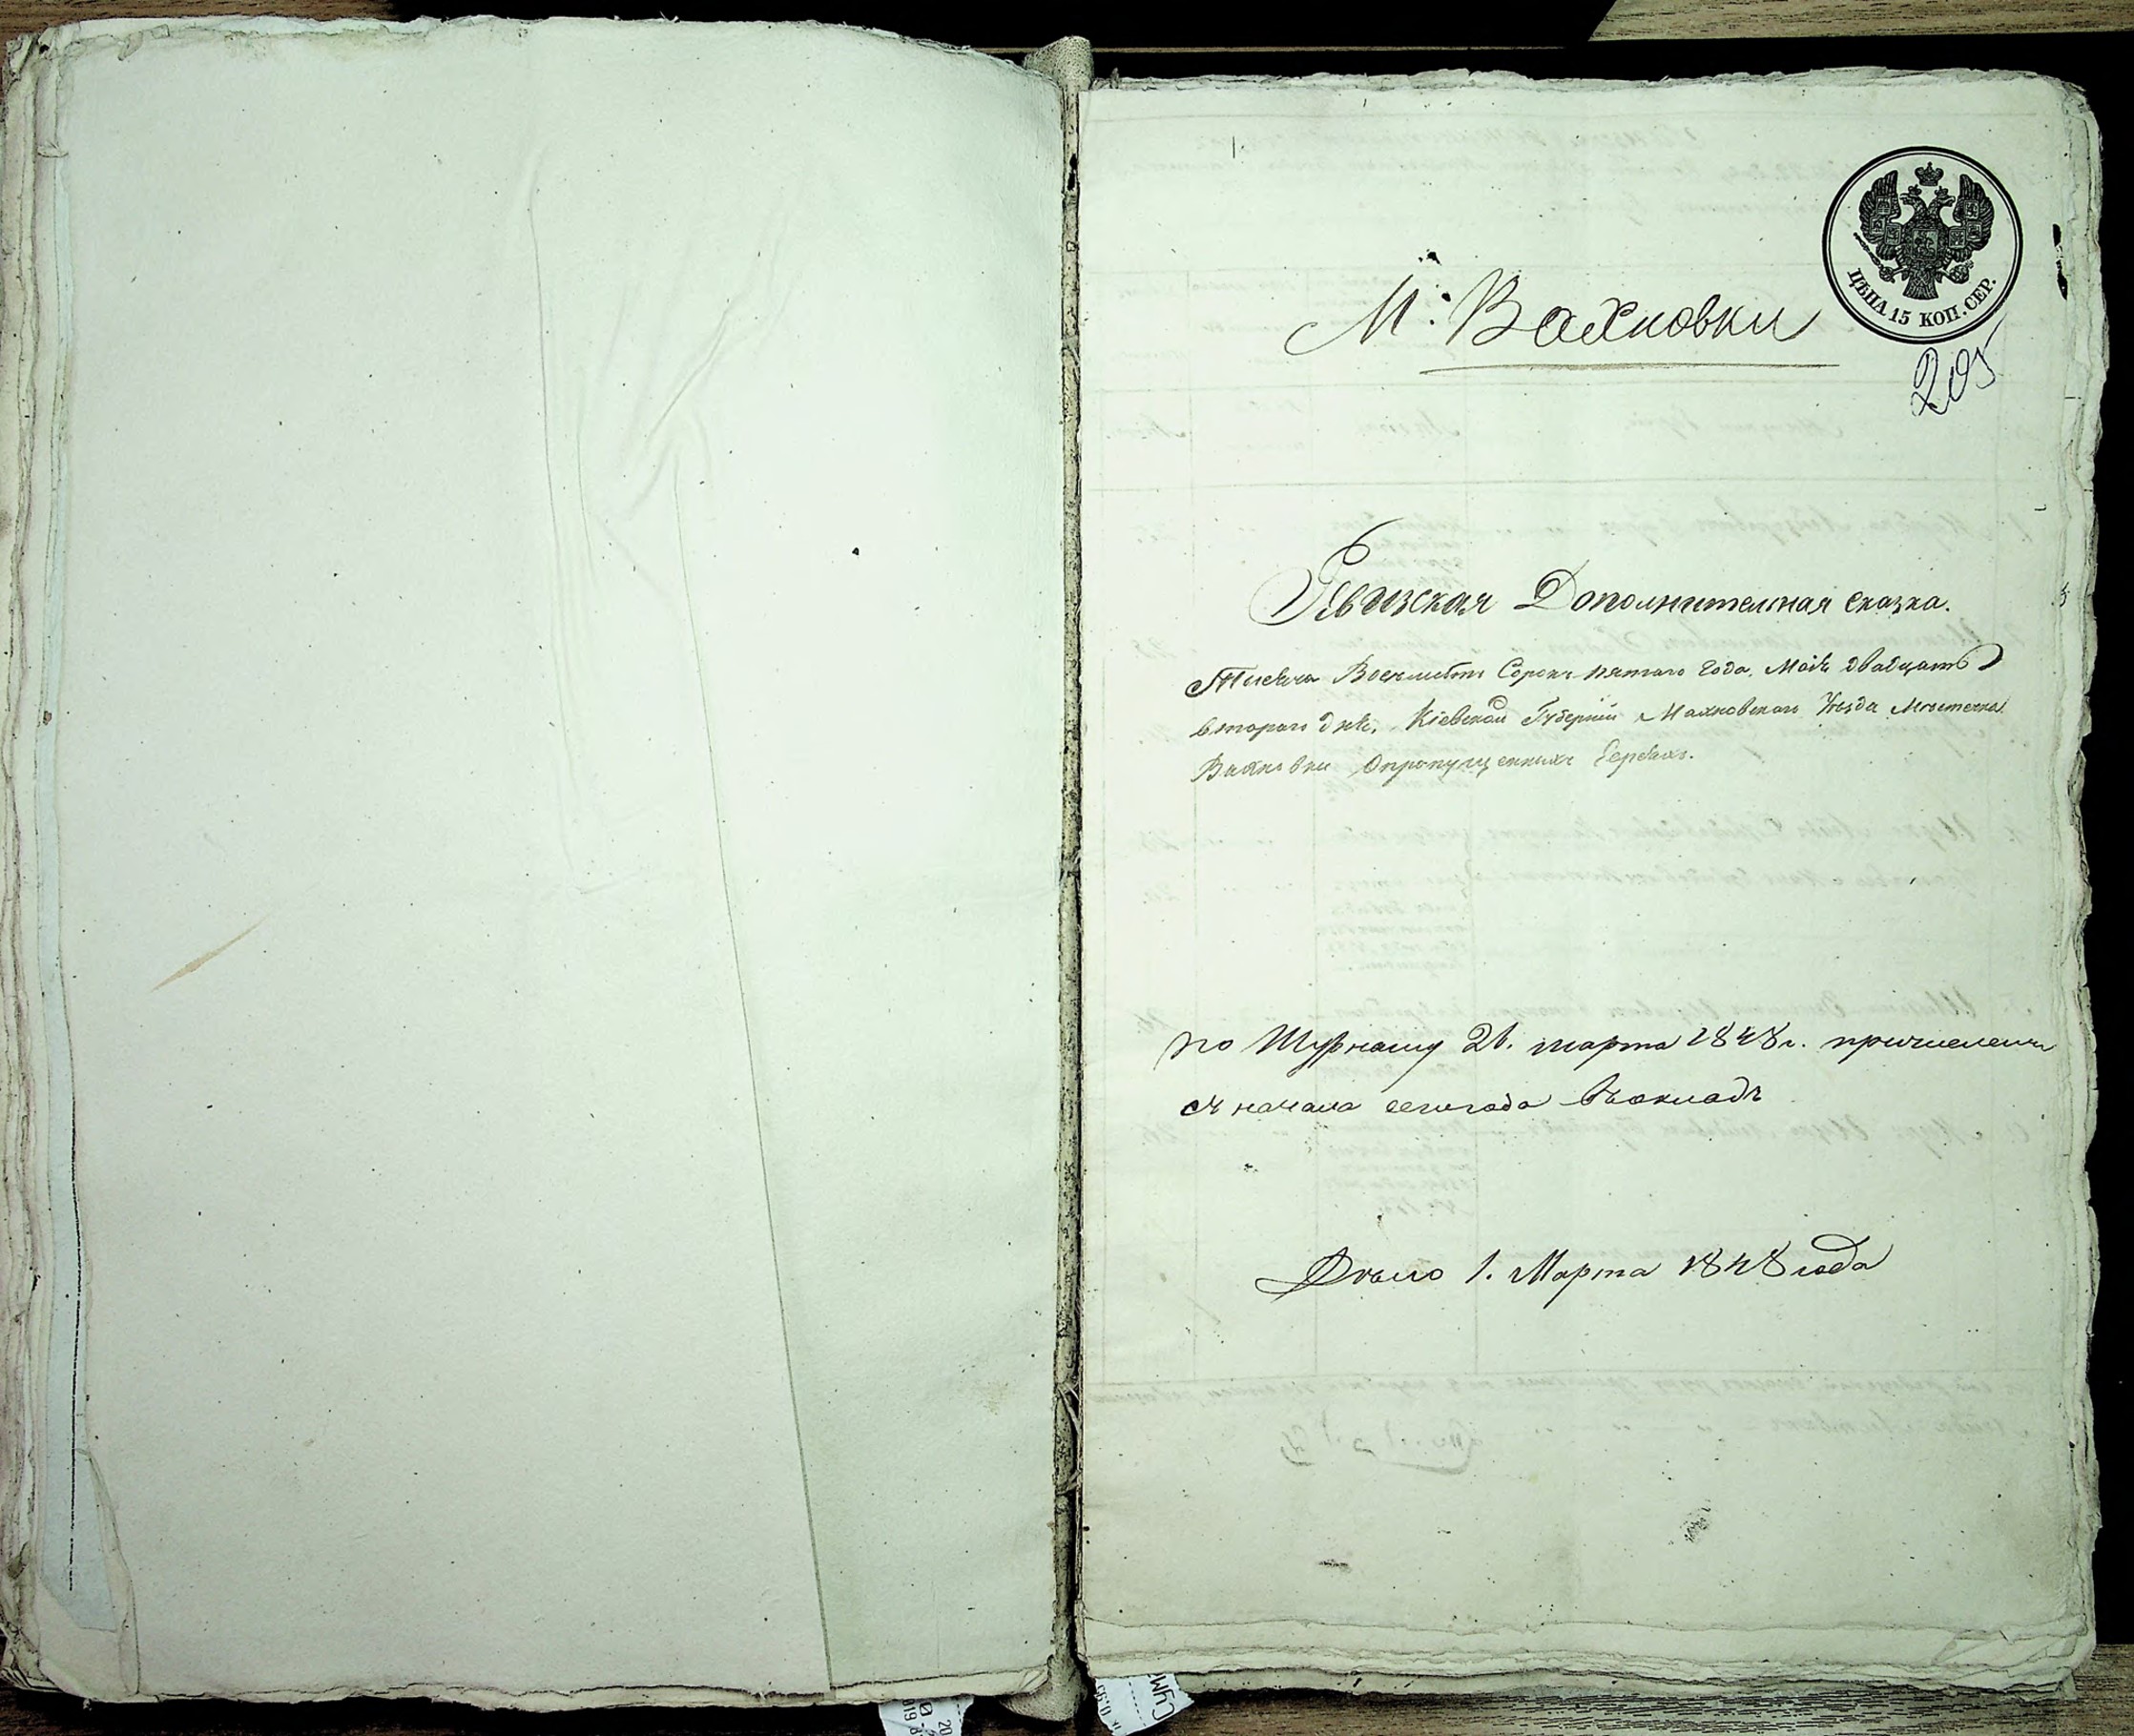 М: Вахновки
ЦѢНА 15 КОП. СЕР.
205
Ревизская Дополнительная сказка.
Тысяча Восемьсотъ Сорокъ пятаго Года, Маія двадцать
втораго дня, Кіевской Губерніи Махновскаго Уѣзда Мѣстечка
Вахновки Опропущенныхъ Евреяхъ.
по Журналу 26. марта 1848 г. причислены
съ начала сегогода въокладъ
Дѣло 1. Марта 1848 года